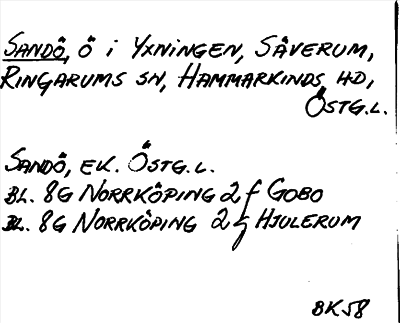 SANDÖ, Ö i YXNINGEN, SÄVERUM,
RINGARUMS SN, HAMMARKINDS HD,
ÖSTG.L.
SANDÖ, EK. ÖSTG.L.
BL. 8G NORRKÖPING 2 f GOBO
BL. 8G NORRKÖPING 2 g HJULERUM
BK58